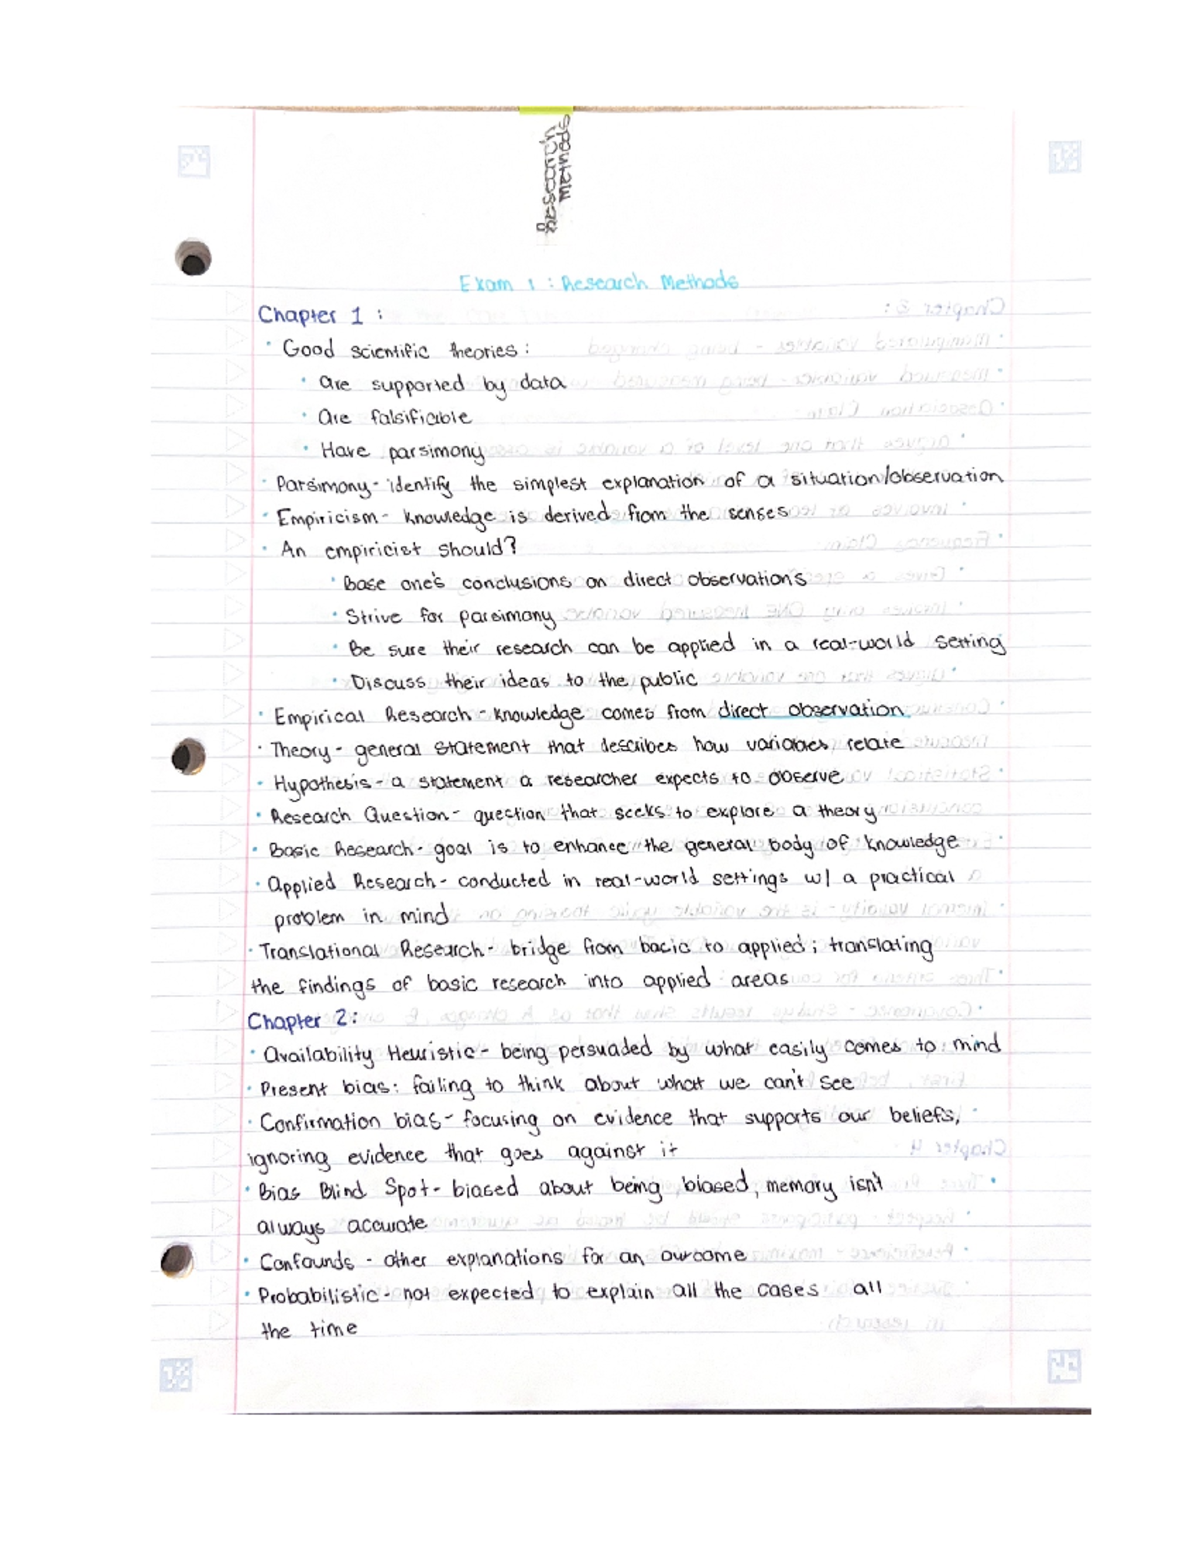 Research Methods
Exam 1 : Research Methods
Chapter 1 :
· Good scientific theories :
· are supported by data
· Are falsifiable
· Have parsimony
· Parsimony - identify the simplest explanation of a situation/observation
· Empiricism - knowledge is derived from the senses
· An empiricist should?
· Base one's conclusions on direct observations
· Strive for parsimony
· Be sure their research can be applied in a real-world setting
· Discuss their ideas to the public
· Empirical Research - knowledge comes from direct observation
· Theory - general statement that describes how variables relate
· Hypothesis - a statement a researcher expects to observe
· Research Question - question that seeks to explore a theory
· Basic Research - goal is to enhance the general body of knowledge
· Applied Research - conducted in real-world settings w/ a practical
problem in mind
· Translational Research - bridge from basic to applied ; translating
the findings of basic research into applied areas
Chapter 2 :
· Availability Heuristic - being persuaded by what easily comes to mind
· Present bias : failing to think about what we can't see
· Confirmation bias - focusing on evidence that supports our beliefs,
ignoring evidence that goes against it
· Bias Blind Spot - biased about being biased, memory isn't
always accurate
· Confounds - other explanations for an outcome
· Probabilistic - not expected to explain all the cases all
the time